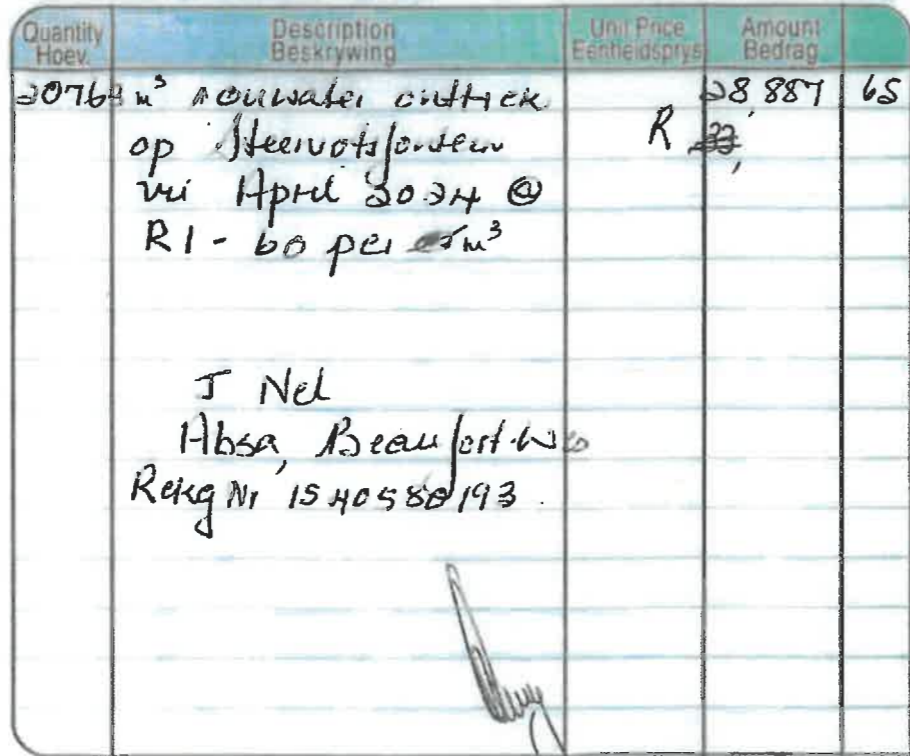 Quantity Hoev. Description Beskrywing Unit Price Eenheidsprys Amount Bedrag
20764 m³ rouwater onttrek 28,887 65
op Steenrotsfontein R
vir April 2024 @
R1-60 per m³
J Nel
Absa, Beaufort-Wes
Rekg Nr 1540580193.